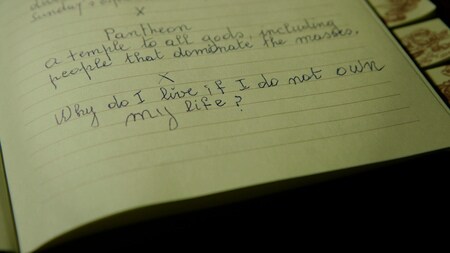 Sunday's
x
Pantheon
a temple to all gods, including
people that dominate the masses.
x
Why do I live if I do not own
my life?